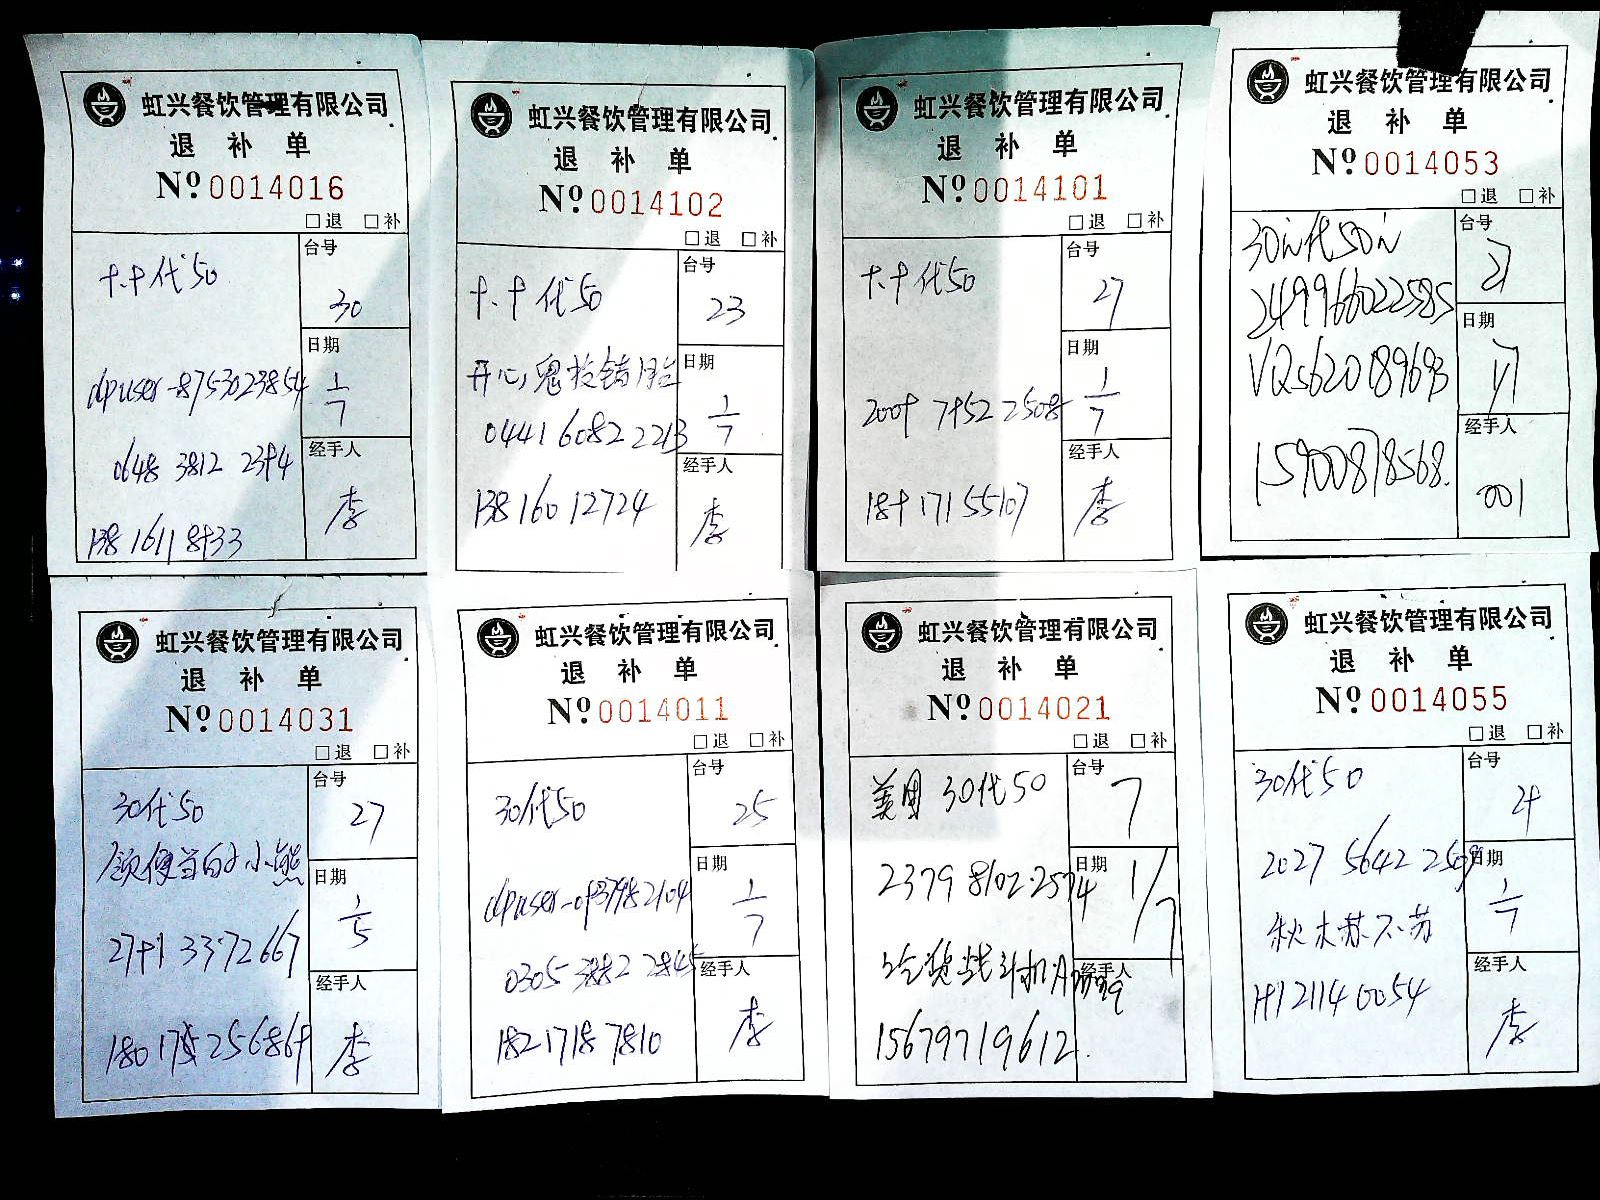 虹兴餐饮管理有限公司
退 补 单
Nº 0014016
□退 □补
台号
30
代50
日期
1/7
dpuser-8753023854
经手人
李
虹兴餐饮管理有限公司
退 补 单
Nº 0014102
□退 □补
台号
23
代50
日期
1/7
开心鬼
04416082 2213
经手人
138 160 12724
李
虹兴餐饮管理有限公司
退 补 单
Nº 0014101
□退 □补
台号
27
代50
日期
1/7
经手人
李
虹兴餐饮管理有限公司
退 补 单
Nº 0014053
□退 □补
台号
21
30元代50元
249966022585
日期
1/7
VQ5620189693
经手人
15900878568.
001
虹兴餐饮管理有限公司
退 补 单
Nº 0014031
□退 □补
台号
27
30代50
颜便当的小熊
日期
1/5
经手人
李
虹兴餐饮管理有限公司
退 补 单
Nº 0014011
□退 □补
台号
25
30代50
日期
1/7
0305 3882 2845
经手人
182 1718 7810
李
虹兴餐饮管理有限公司
退 补 单
Nº 0014021
□退 □补
台号
7
美团 30代50
日期
1/7
2379 8102 2574
经手人
战斗机
15679719612.
虹兴餐饮管理有限公司
退 补 单
Nº 0014055
□退 □补
台号
24
30代50
日期
1/7
2027 5642
秋木苏不苏
经手人
李